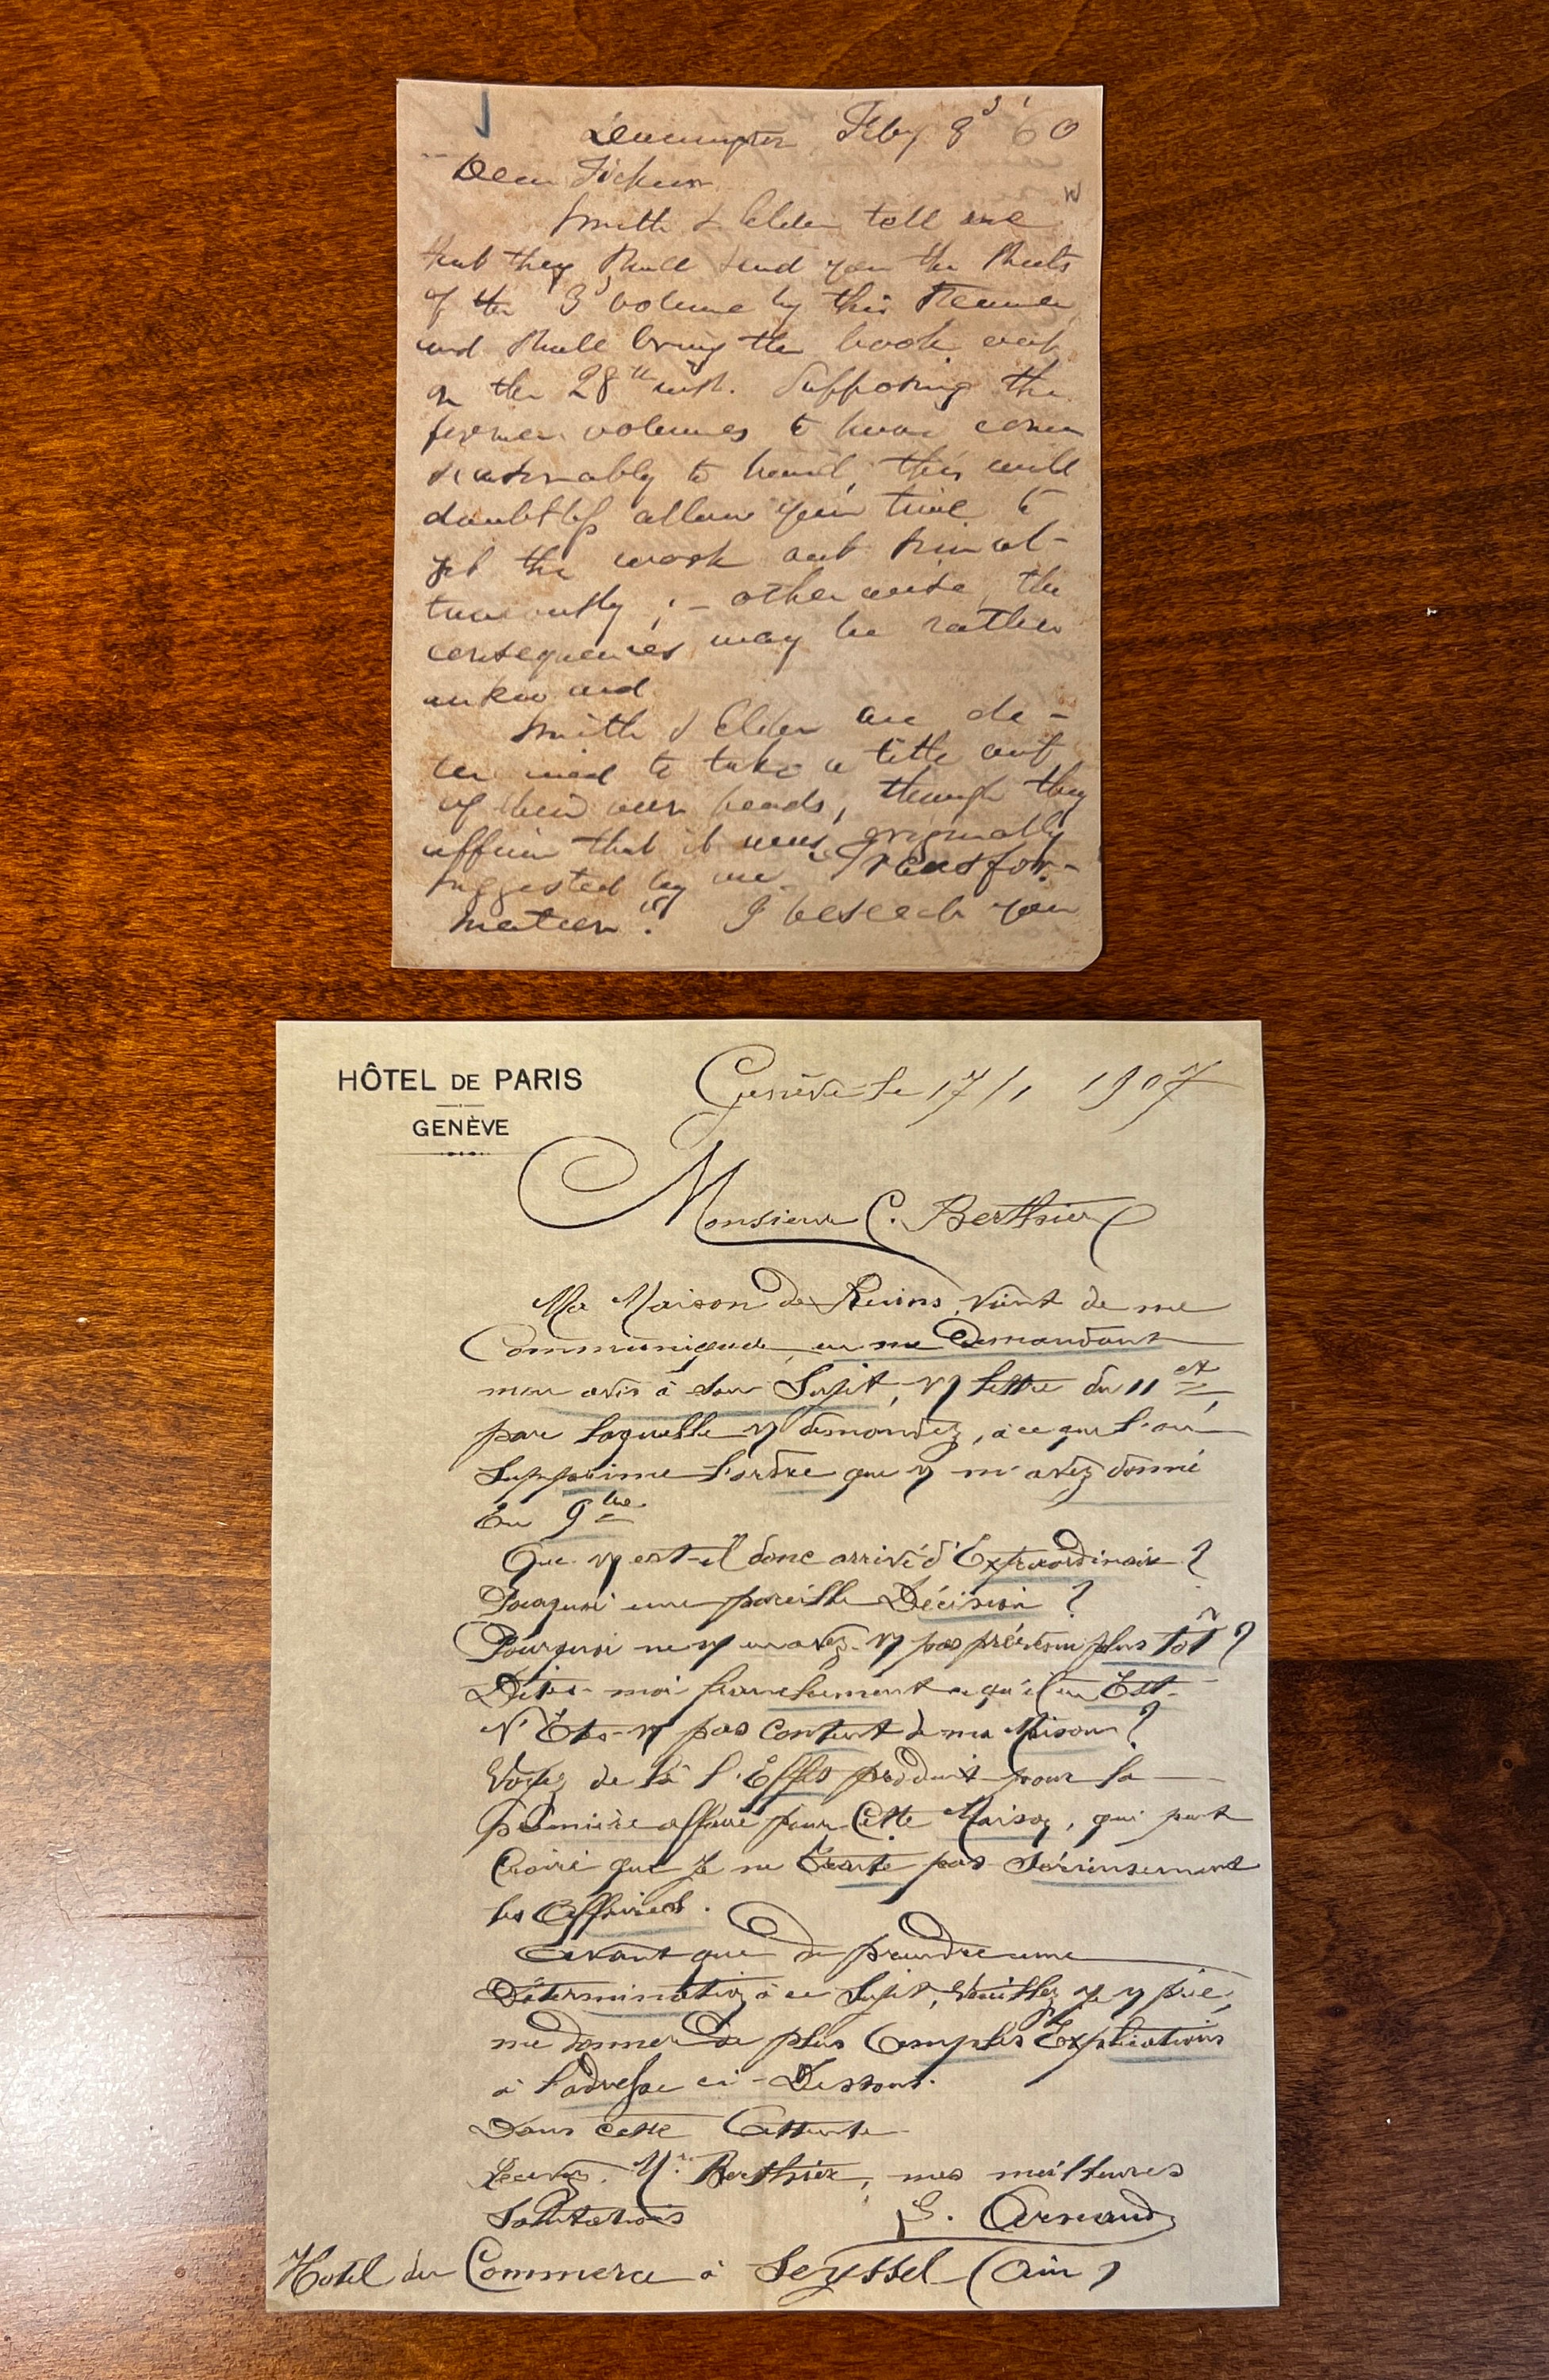 Leamington, Feby 8' '60
Dear Ticknor
W
Smith & Elder tell me
that they shall send you the sheets
of the 3d volume by this steamer,
and shall bring the book out
on the 28th inst. Supposing the
former volumes to have come
seasonably to hand, this will
doubtless allow you time to
get the work out simul-
taneously; – otherwise, the
consequences may be rather
awkward
Smith & Elder are de-
termined to take a title out
of their own heads, though they
affirm that it was originally
suggested by me "Transfor-
mation." I beseech you
HÔTEL DE PARIS
GENÈVE
Genève le 17/1 1907
Monsieur C. Berthier
Ma Maison de Reims, vient de me
Communiquer, en me Demandant
mon avis à son Sujet, v/ lettre du 11 ct,
par laquelle v/ demandez, à ce que l'on
Supprime l'ordre que v/ m'avez donné
En 9bre
Que v/ est-il donc arrivé d'Extraordinaire ?
Pourquoi une pareille Décision ?
Pourquoi ne m'en avez-v/ pas prévenu plus tôt ?
Dites-moi franchement ce qu'il en Est.
N'Etes-v/ pas Content de ma Maison ?
Voyez de là l'Effet produit pour la
première affaire pour Cette Maison, qui peut
Croire que je ne traite pas Sérieusement
les Affaires.
Avant que de prendre une
Détermination à ce Sujet, Veuillez je v/ prie,
me donner de plus Amples Explications
à l'adresse ci-Dessous.
Dans cette Attente
Recevez, Mr. Berthier, mes meilleures
Salutations
G. Arnaud
Hotel du Commerce à Seyssel (Ain)